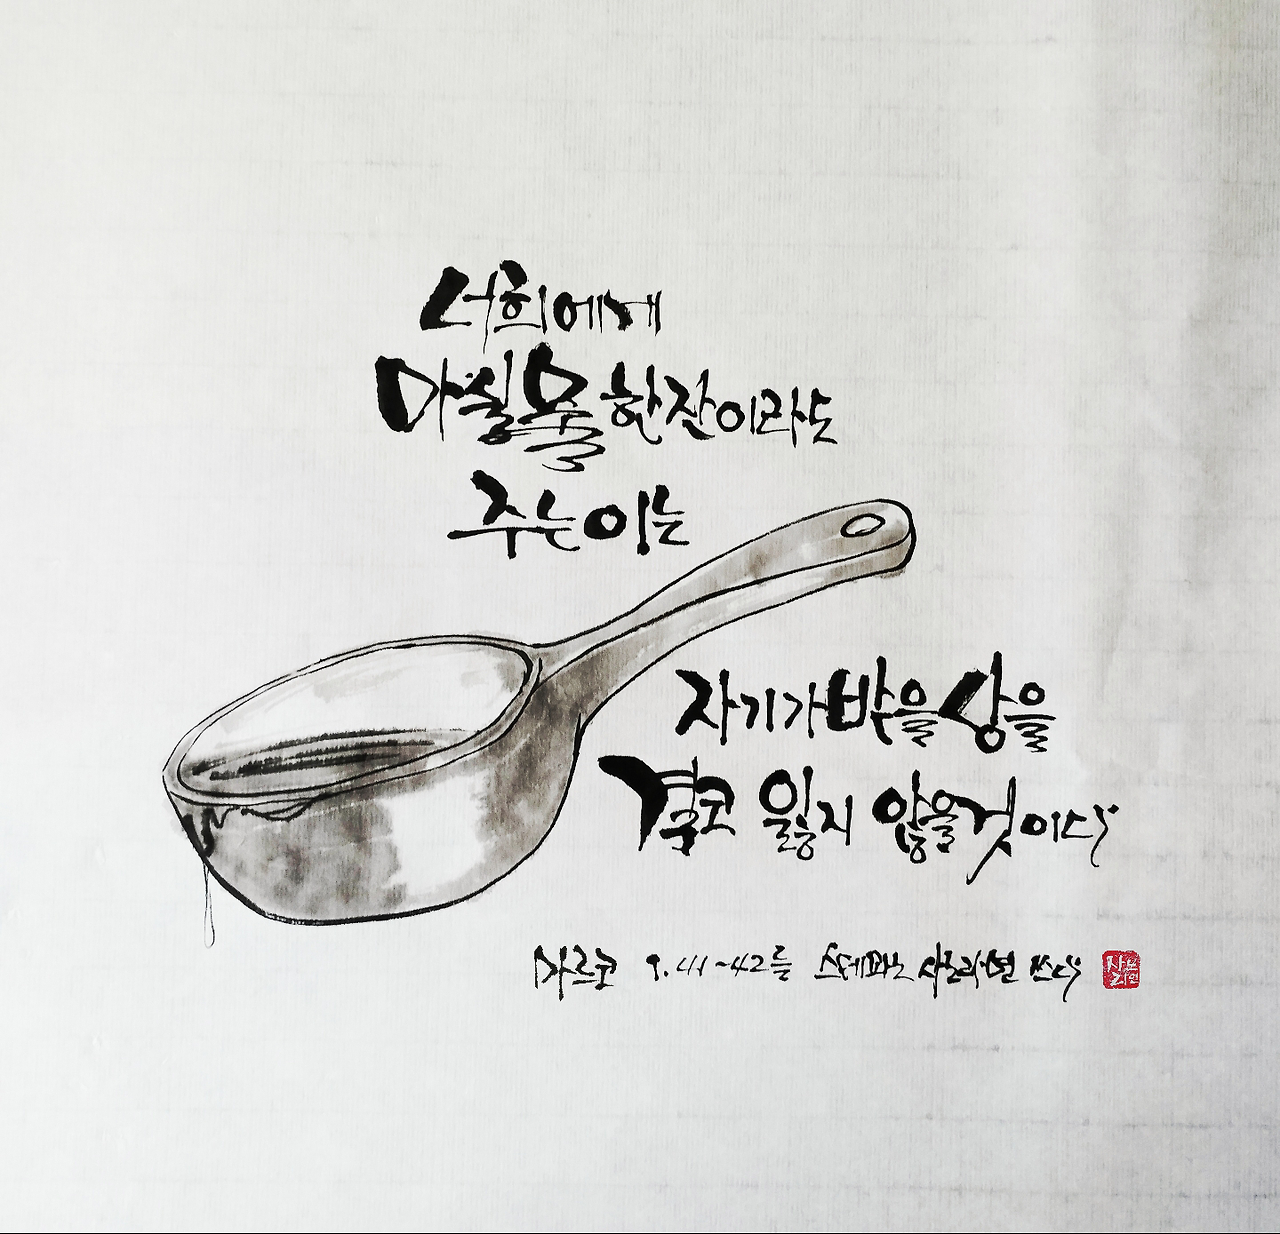 너희에게
마실 물 한잔이라도
주는 이는
자기가 받을 상을
결코 잃지 않을 것이다
마르코 9.41~42를 스테파노 쓰다